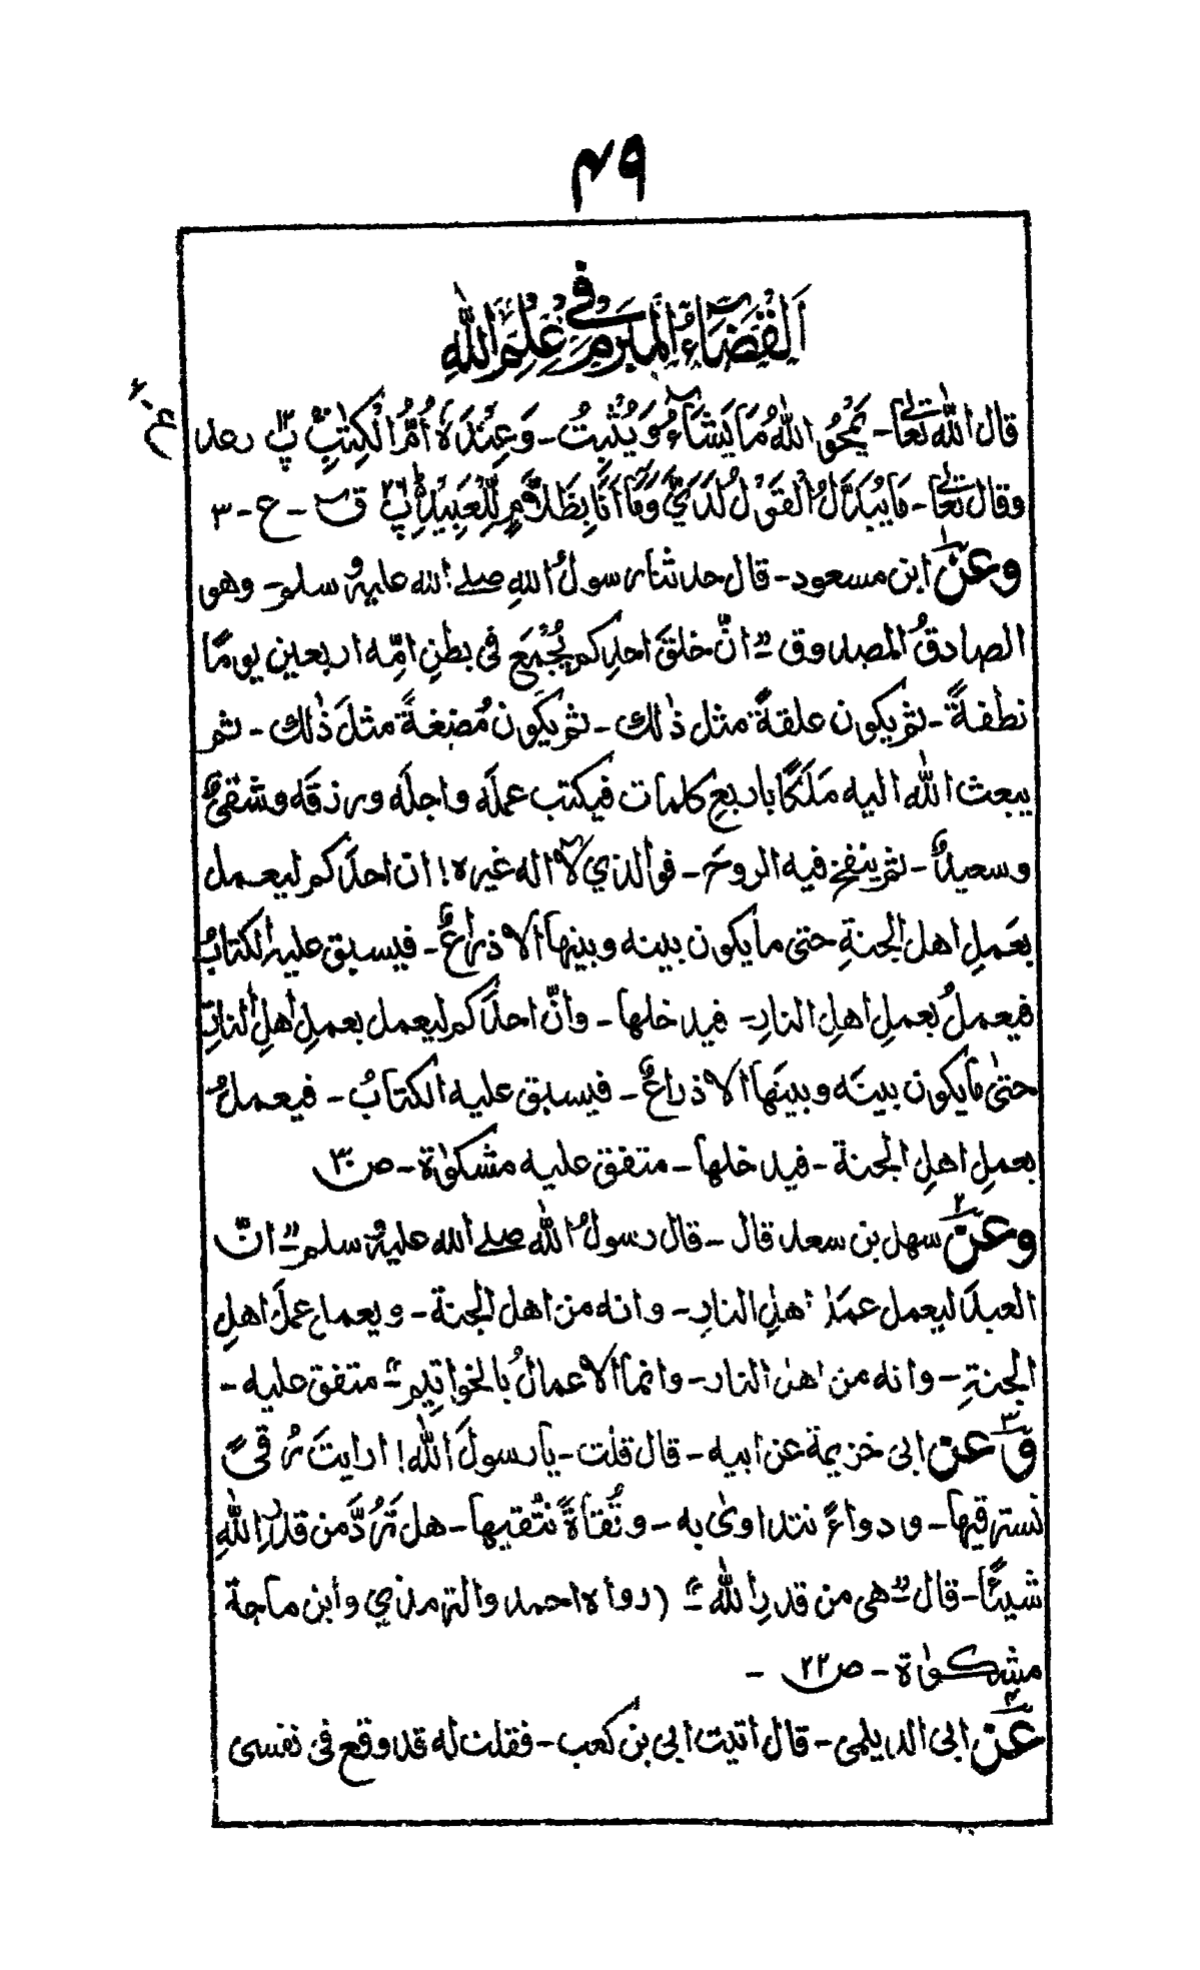 ۴۹
اَلْقَضَاءُ الْمُبْرَمُ فِيْ عِلْمِ اللّٰهِ
قال اللّٰه تعالٰى ـ يَمْحُو اللّٰهُ مَا يَشَآءُ وَيُثْبِتُ ـ وَعِنْدَهٗ اُمُّ الْكِتٰبِ پ۱۳ رعد ع ـ ۶
وقال تعالٰى ـ مَا يُبَدَّلُ الْقَوْلُ لَدَيَّ وَمَآ اَنَا بِظَلَّامٍ لِّلْعَبِيْدِ پ۲۶ ق ـ ع ـ ۳
وعن۱ ابن مسعود ـ قال حدثنا رسولُ اللهِ صلے الله عليه وسلم ـ وهو
الصادقُ المصدوق " انّ خلقَ احدِكم يُجْمَعُ فى بطنِ امِّه اربعين يومًا
نطفةً ـ ثم يكون علقةً مثل ذٰلك ـ ثم يكون مُضغةً مثلَ ذٰلك ـ ثم
يبعث اللّٰه اليه مَلَكًا باربعِ كلمات فيكتب عملَه واجلَه ورزقَه وشقىٌّ
وسعيدٌ ـ ثم ينفخ فيه الروحَ ـ فوالذي لا اله غيره! ان احدَكم ليعمل
بعَملِ اهل الجنةِ حتى ما يكون بينه وبينها الا ذراعٌ ـ فيسبق عليه الكتابُ
فيعملُ بعملِ اهلِ النارِ ـ فيدخلها ـ وانّ احدَكم ليعمل بعملِ اهلِ النارِ
حتىٰ ما يكون بينَه وبينَها الا ذراعٌ ـ فيسبق عليه الكتابُ ـ فيعملُ
بعملِ اهلِ الجنة ـ فيدخلها ـ متفق عليه مشكوٰة ـ ص۲۰
وعن۲ سهل بن سعد قال ـ قال رسولُ اللّٰه صلے الله عليه وسلم " انّ
العبدَ ليعمل عمَلَ اهلِ النارِ ـ وانه من اهل الجنة ـ ويعمل عملَ اهلِ
الجنةِ ـ وانه من اهل النار ـ وانما الاعمالُ بالخواتِيم " متفق عليه ـ
وعن۳ ابى خزيمة عن ابيه ـ قال قلت ـ يا رسولَ اللّٰه! ارايتَ رُقىً
نسترقيها ـ ودواءً نتداوىٰ به ـ وتُقاةً نتّقيها ـ هل تَرُدُّ من قدرِ اللّٰهِ
شيئًا ـ قال " هى من قدرِ اللّٰه " (رواه احمد والترمذي وابن ماجة
مشكوٰة ـ ص۲۲ ـ
عن۴ ابى الديلمى ـ قال اتيت ابى بن كعب ـ فقلت له قد وقع فى نفسى